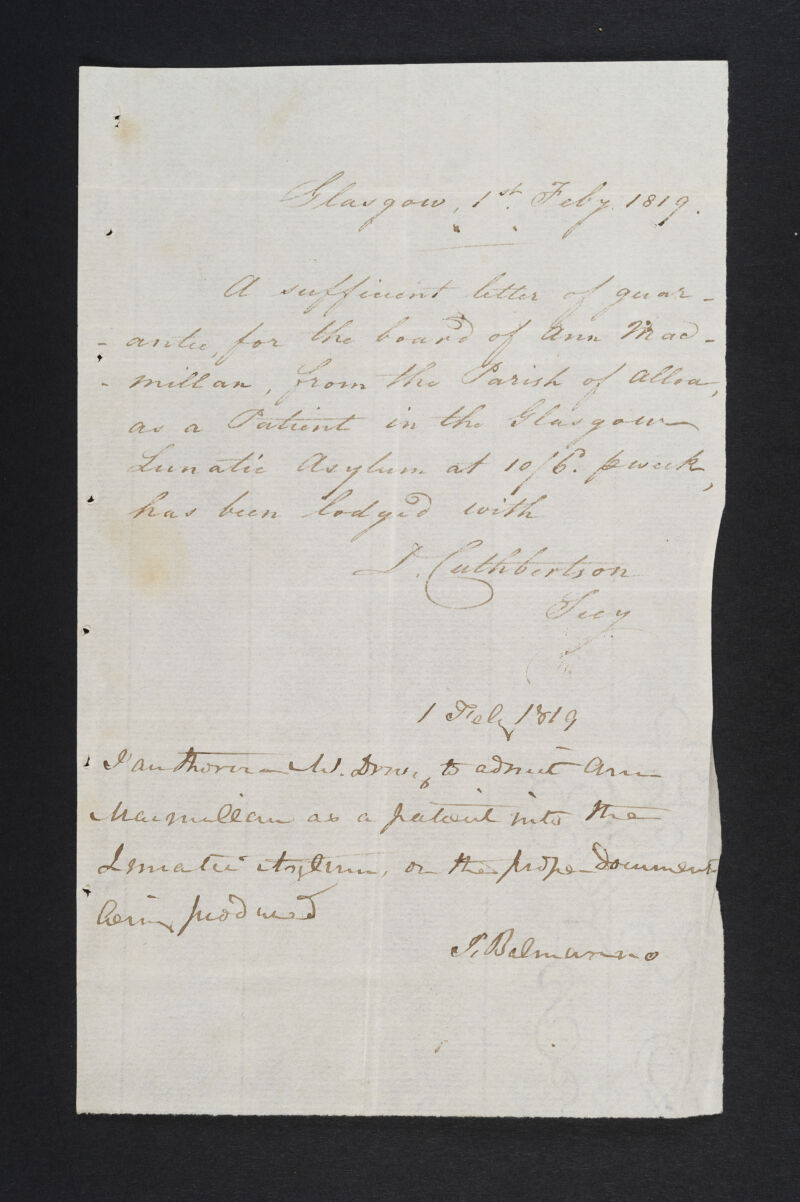 Glasgow, 1st. Feby. 1819.
A sufficient letter of guar-
-antee, for the board of Ann Mac-
-millan, from the Parish of Alloa,
as a Patient in the Glasgow
Lunatic Asylum at 10/6. p week,
has been lodged with
D. Cuthbertson
Secy
1 Feby 1819
I authorise Mr. Drury to admit Ann
Macmillan as a patient into the
Lunatic Asylum, on the proper Documents
being produced
J. Balmanno